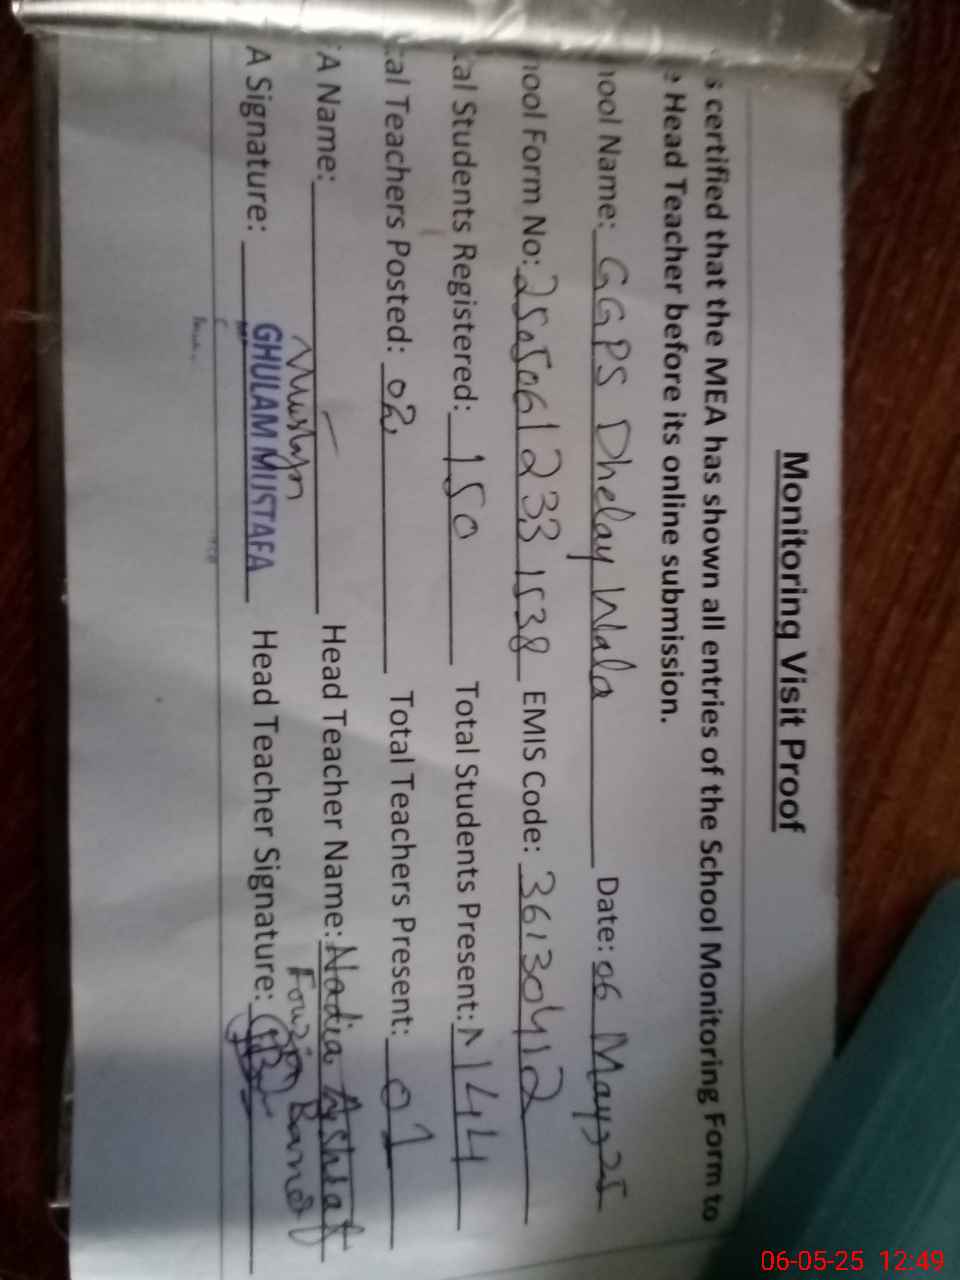 Monitoring Visit Proof
s certified that the MEA has shown all entries of the School Monitoring Form to
e Head Teacher before its online submission.
ool Name: GGPS Dhelay Wala Date: 06 May, 25
ool Form No: 2505061233 1538 EMIS Code: 36130412
al Students Registered: 150 Total Students Present: 144
al Teachers Posted: 02, Total Teachers Present: 01
A Name: Head Teacher Name: Nadia Ashraf
Fouzia Bano
A Signature: GHULAM MUSTAFA Head Teacher Signature:
06-05-25 12:49